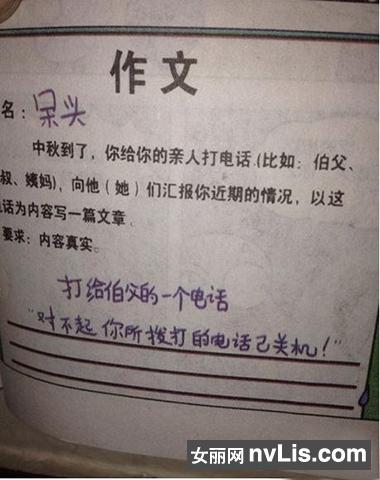 作文
名：呆头
中秋到了，你给你的亲人打电话（比如：伯父、
叔、姨妈），向他（她）们汇报你近期的情况，以这
电话为内容写一篇文章。
要求：内容真实。
打给伯父的一个电话
"对不起你所拨打的电话已关机！"
女丽网nvLis.com